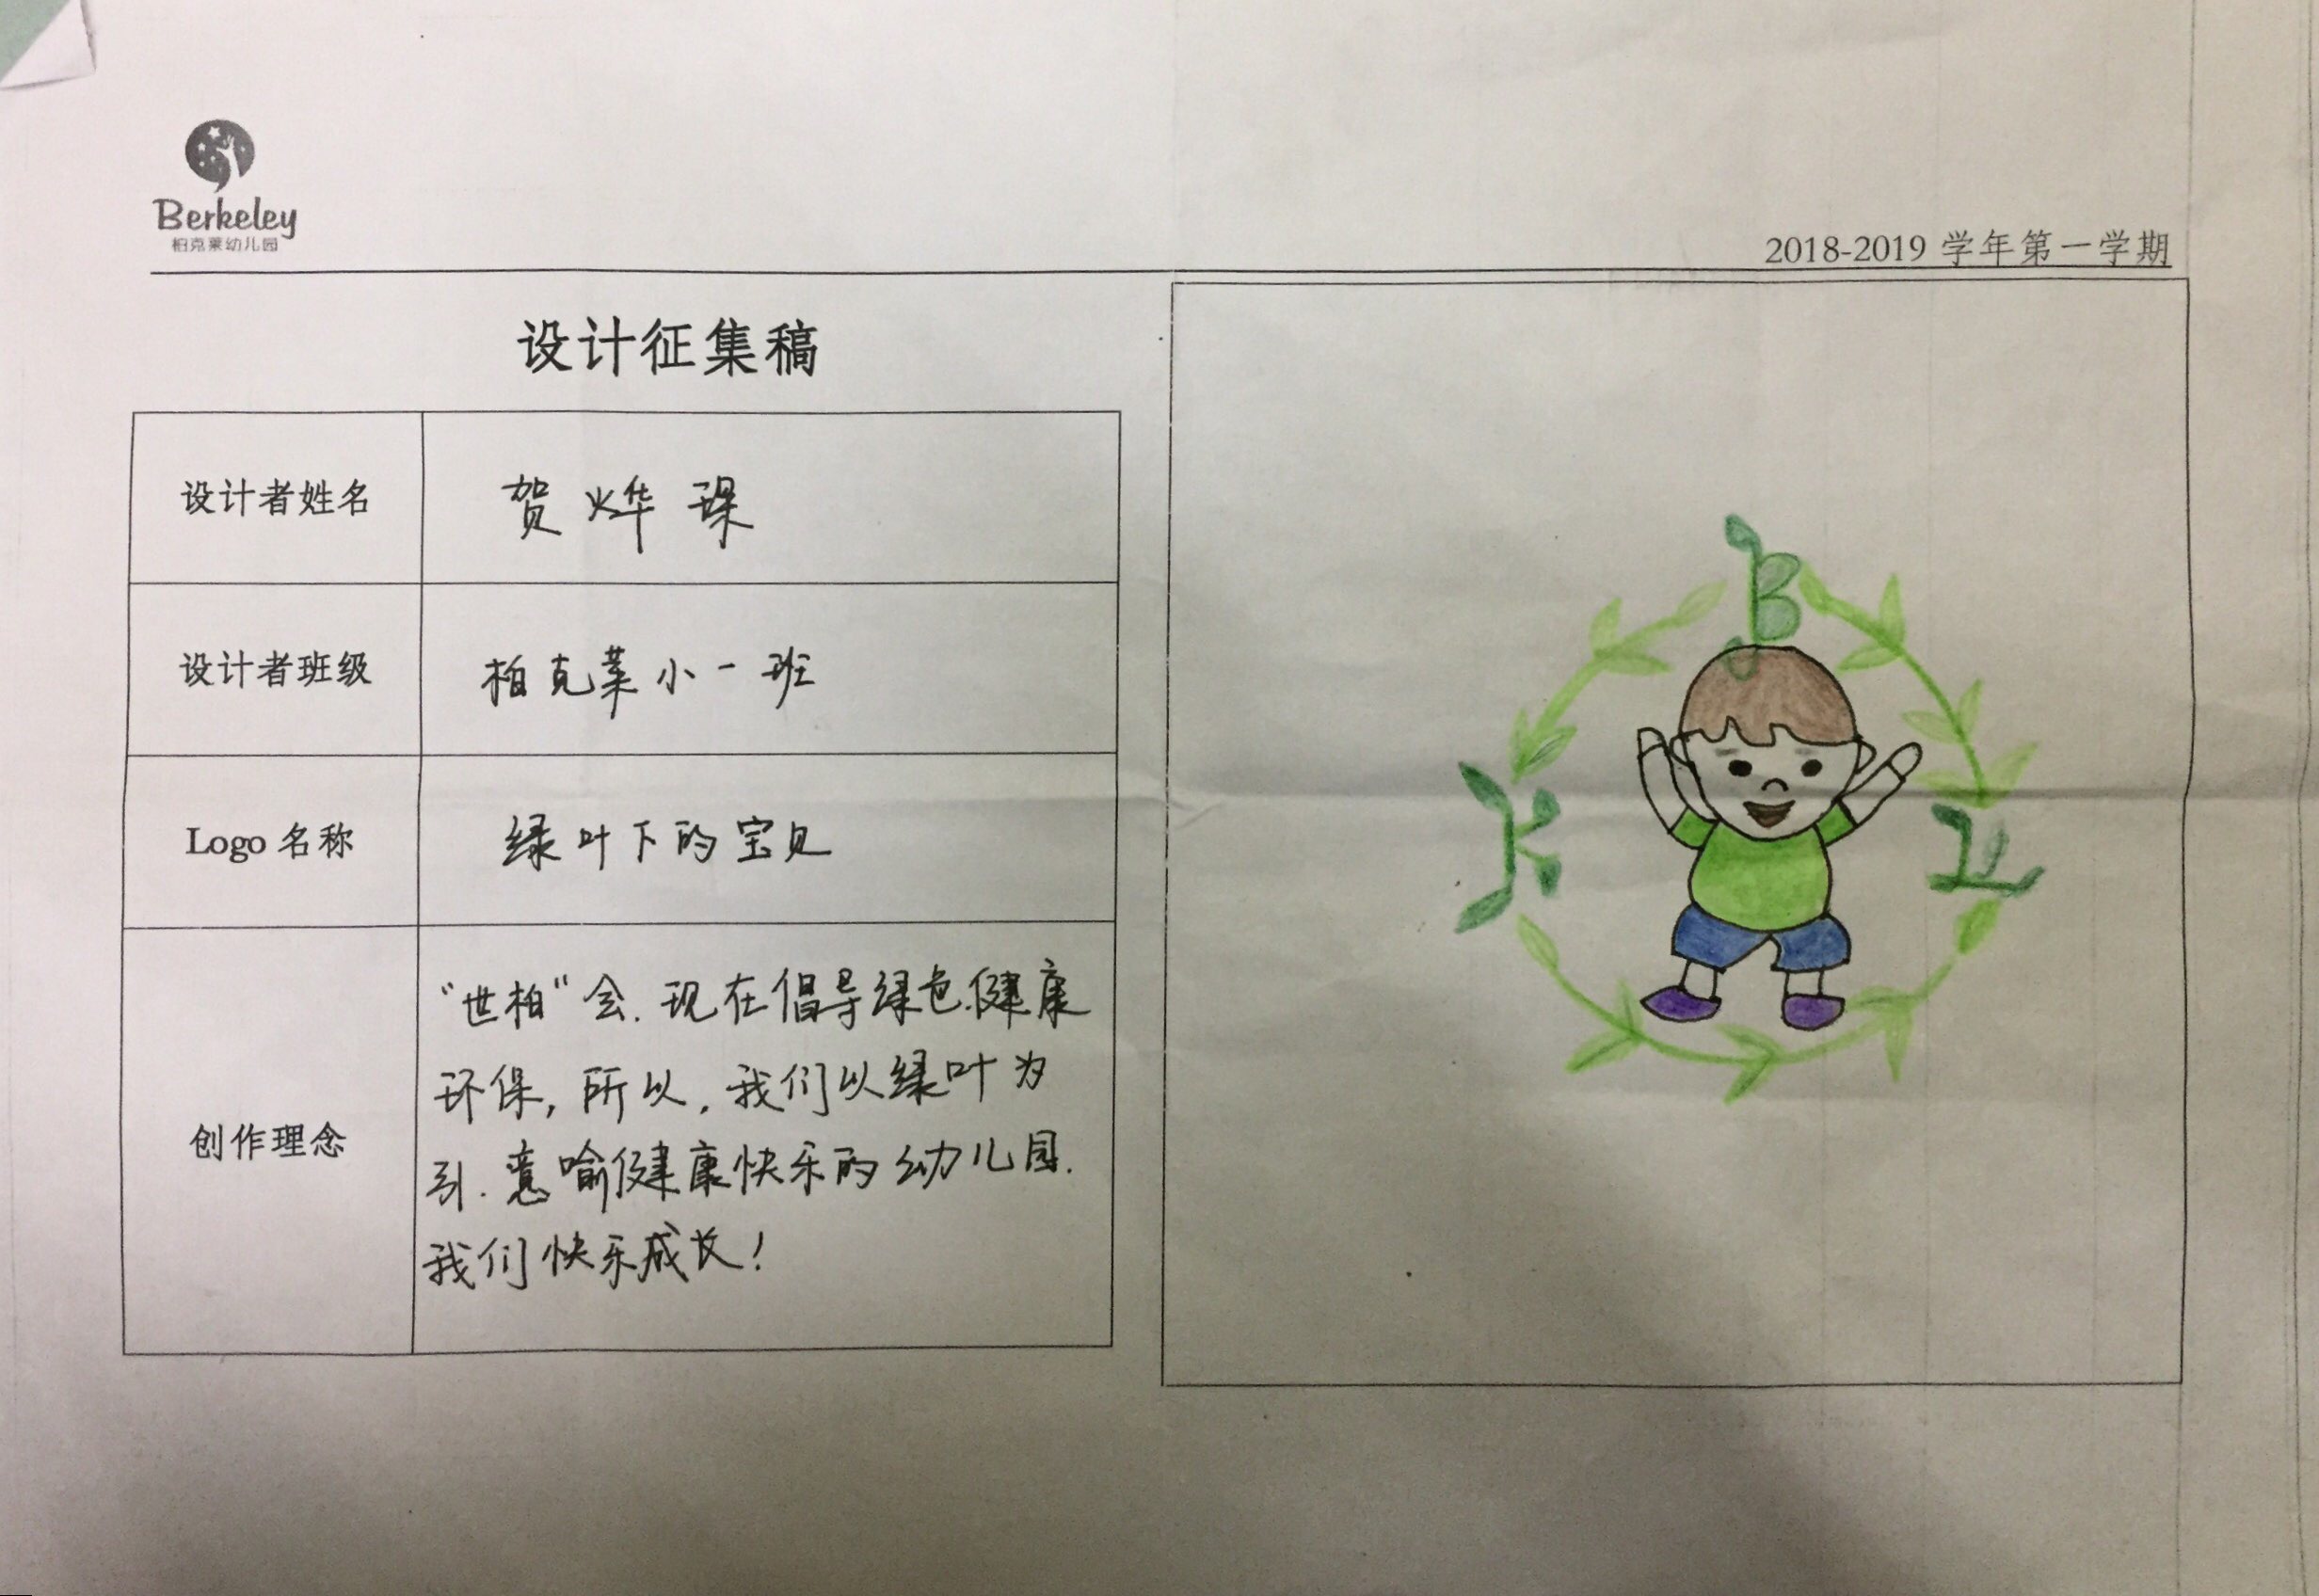 Berkeley
柏克莱幼儿园
2018-2019 学年第一学期
设计征集稿
设计者姓名
贺烨琛
设计者班级
柏克莱小一班
Logo 名称
绿叶下的宝贝
创作理念
“世柏”会.现在倡导绿色.健康
环保,所以,我们以绿叶为
引.意喻健康快乐的幼儿园.
我们快乐成长!
B
K
L